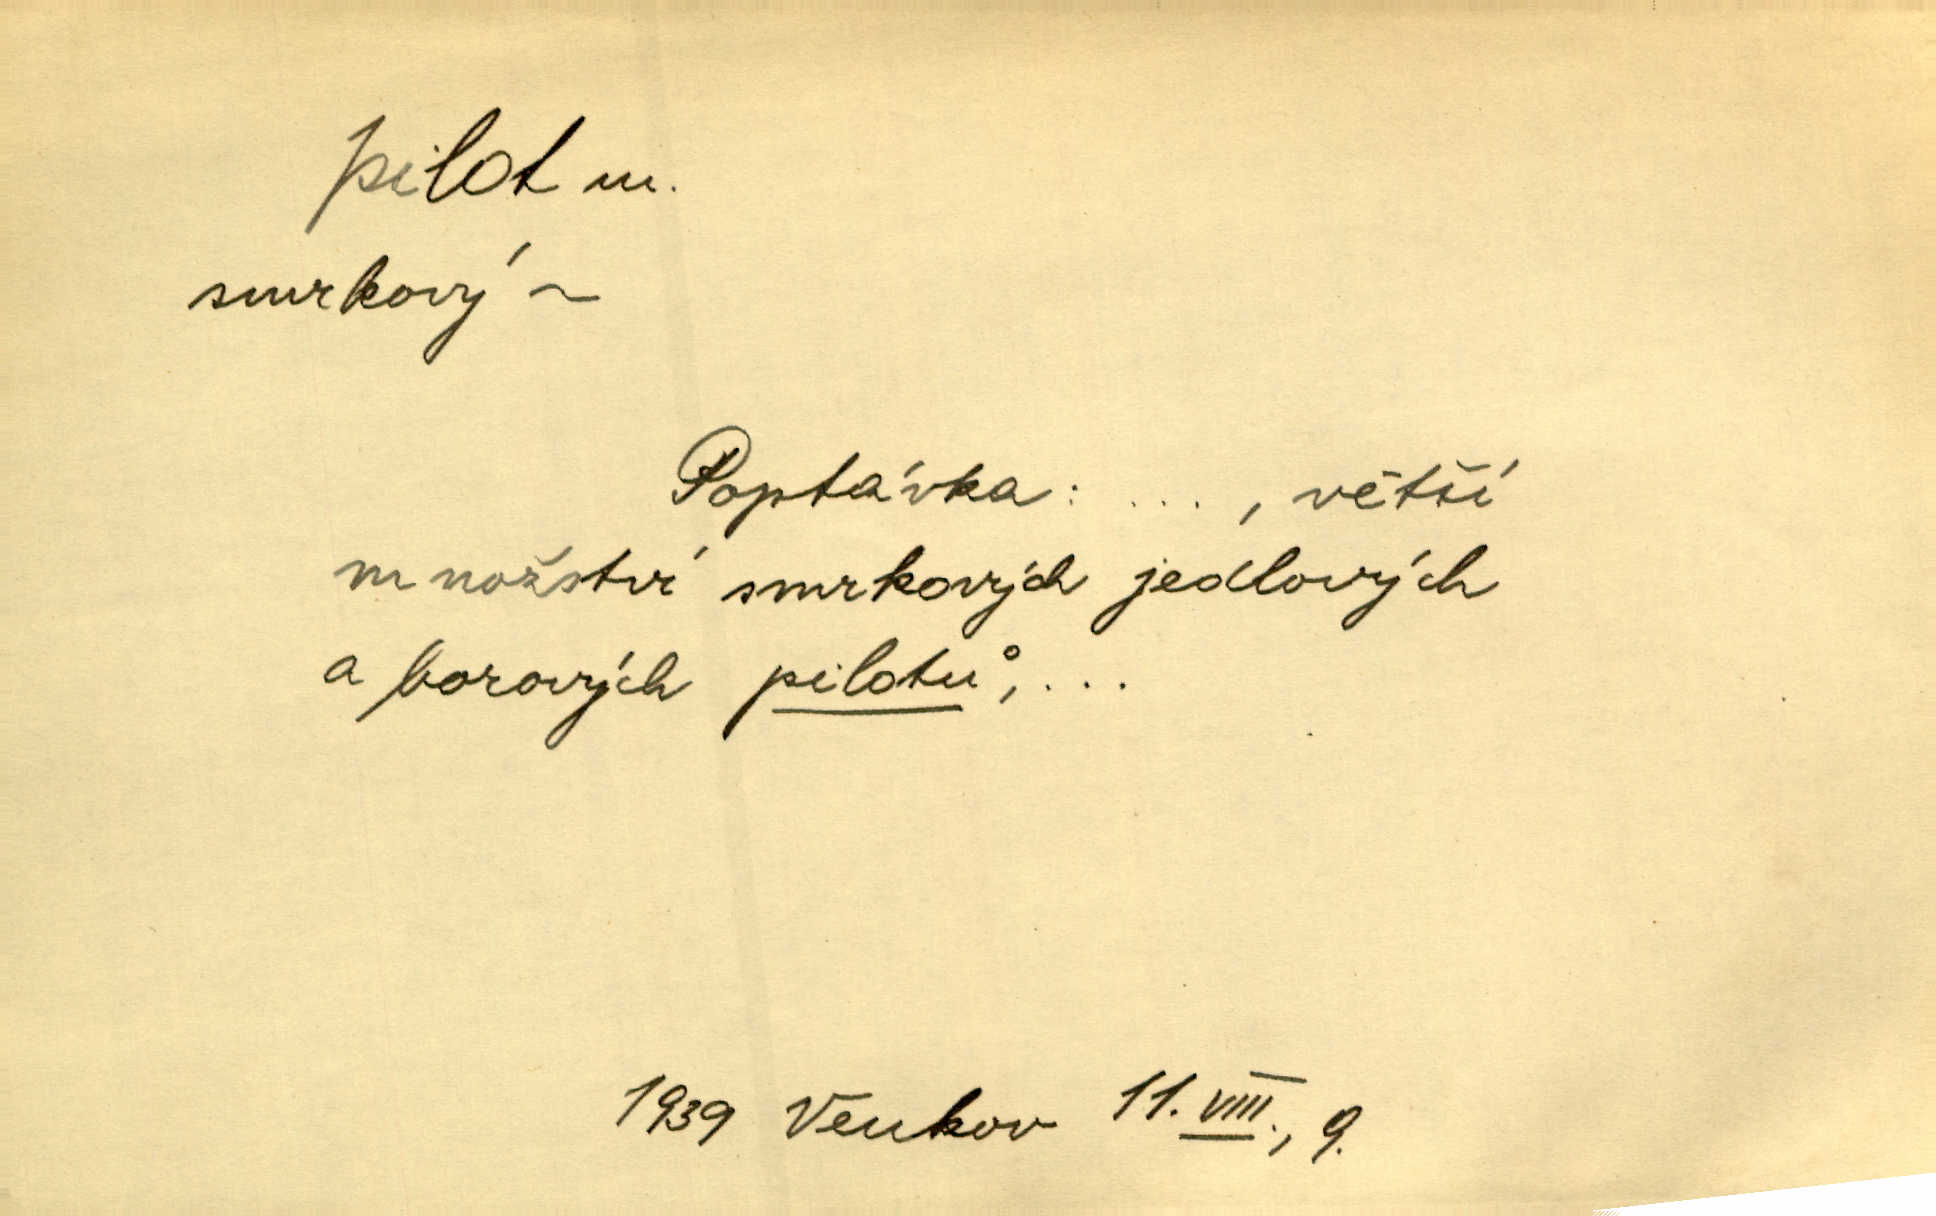 pilot m.
smrkový ~
Poptávka: ..., větší
množství smrkových jedlových
a borových pilotů, ...
1939 Venkov 11. VIII., 9.